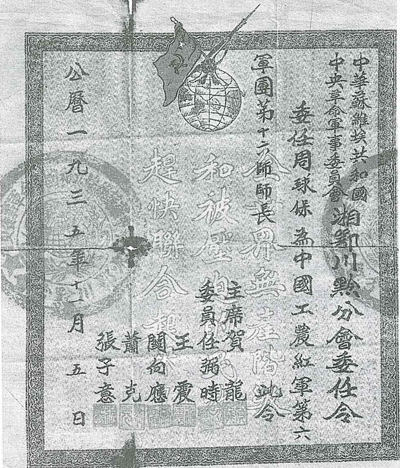 中華蘇維埃共和國
中央革命軍事委員會
湘鄂川黔分會委任令
委任周球保為中國工農紅軍第六
軍團第十六師師長 此令
主席賀龍
委員任弼時
王震
關向應
蕭克
張子意
公曆一九三五年十一月五日
世界無產階
和被壓
趕快聯合